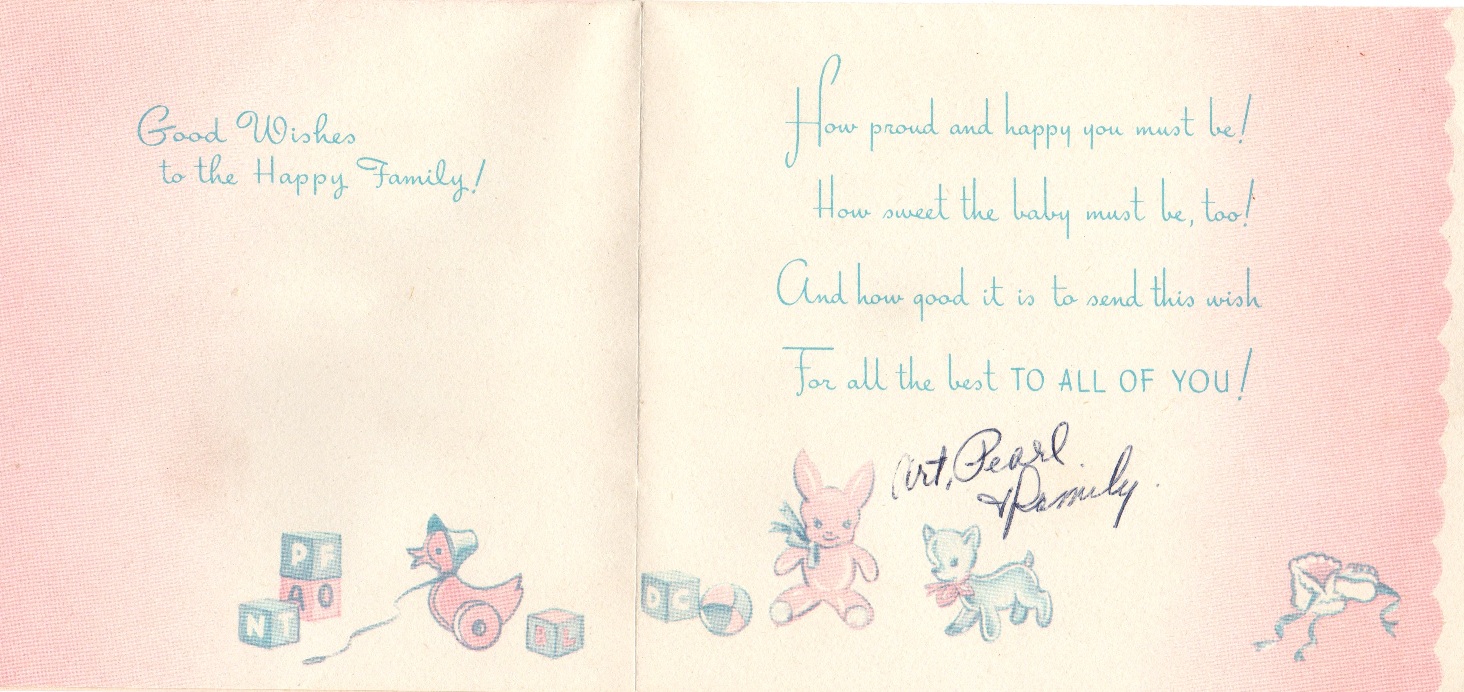 Good Wishes
to the Happy Family!
How proud and happy you must be!
How sweet the baby must be, too!
And how good it is to send this wish
For all the best TO ALL OF YOU!
Art, Pearl
& Family
P F
A O
N T
L
D C